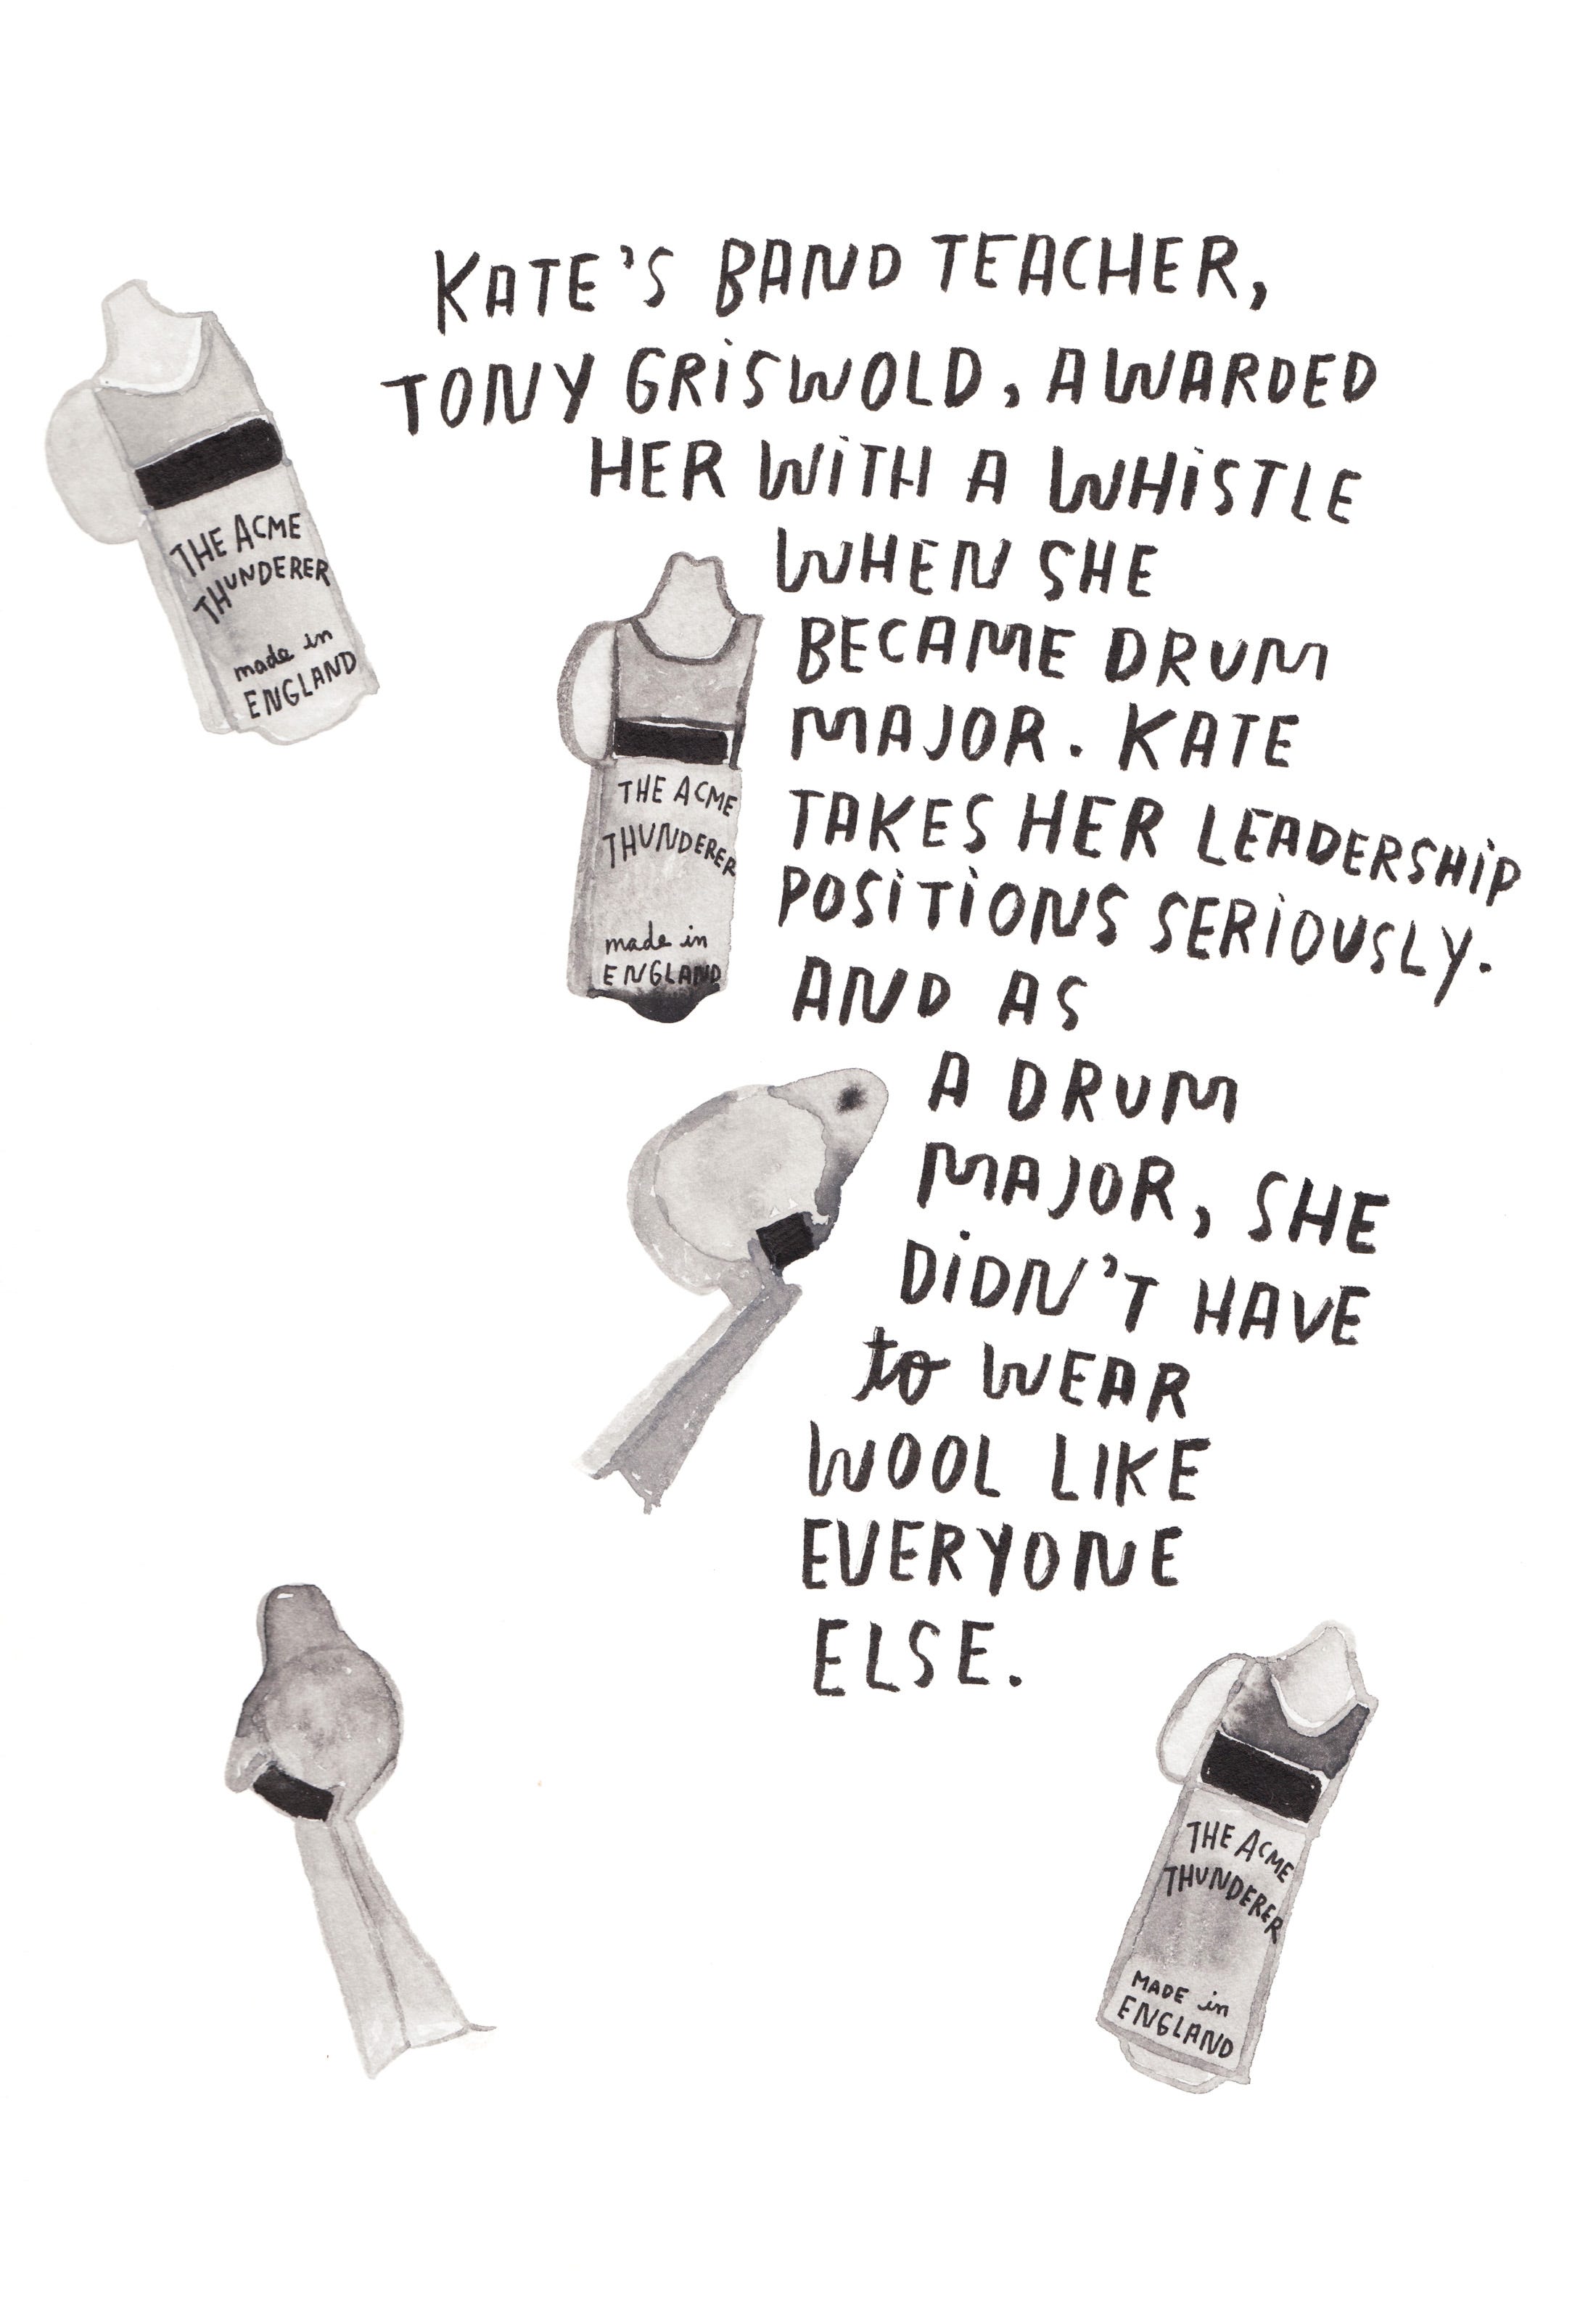 KATE'S BAND TEACHER,
TONY GRiSWOLD, AWARDED
HER WiTH A WHiSTLE
WHEN SHE
BECAME DRUM
MAJOR. KATE
TAKES HER LEADERSHiP
POSiTiONS SERiOUSLY.
AND AS
A DRUM
MAJOR, SHE
DiDN'T HAVE
to WEAR
WOOL LIKE
EVERYONE
ELSE.
THE ACME
THUNDERER
made in
ENGLAND
THE ACME
THUNDERER
made in
ENGLAND
THE ACME
THUNDERER
MADE in
ENGLAND